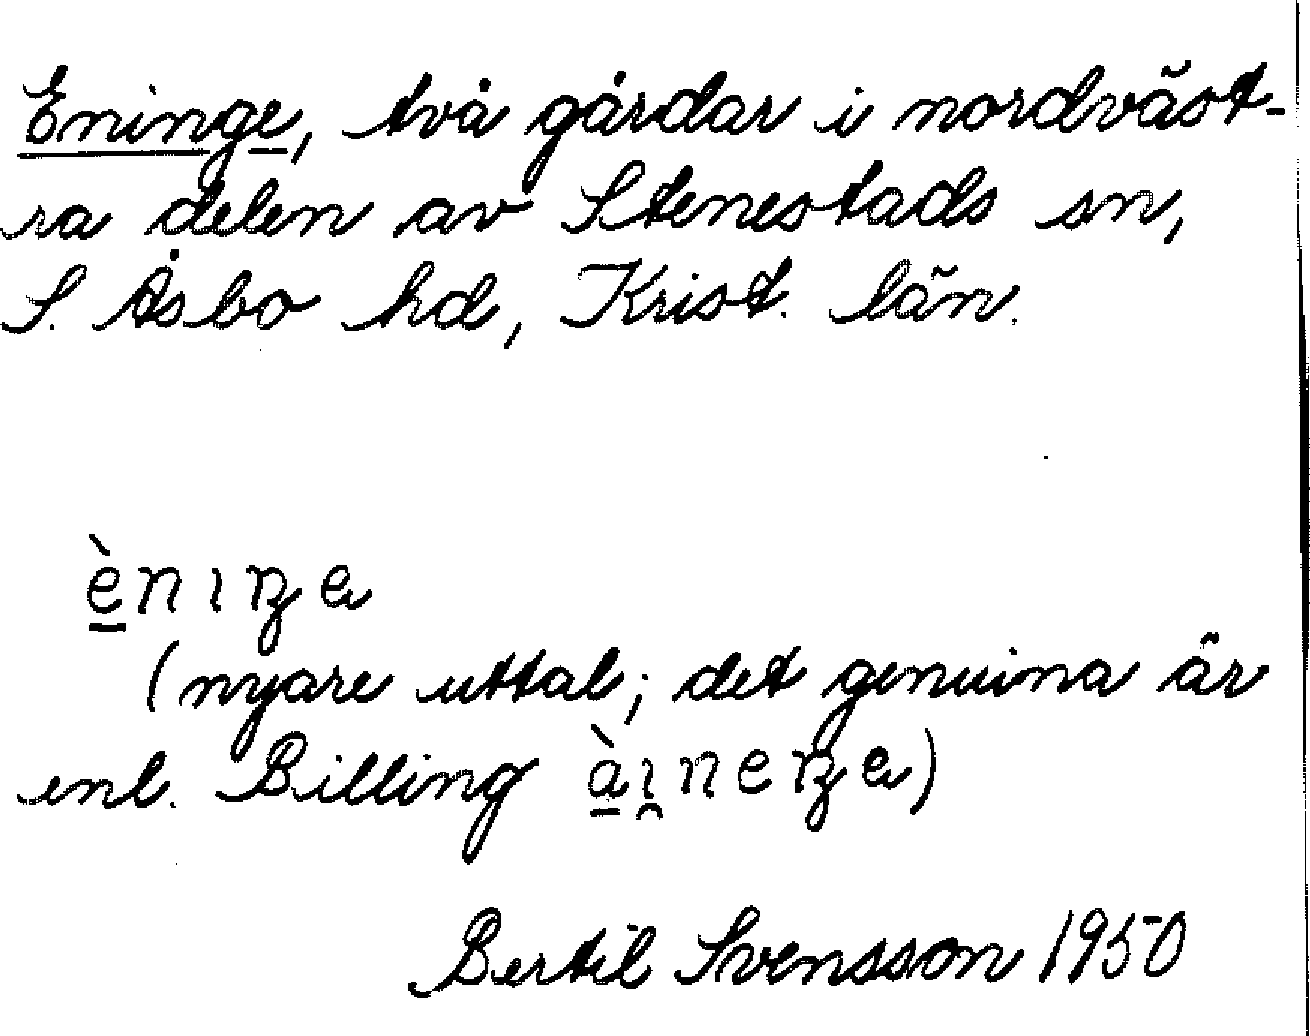 Eninge, två gårdar i nordväst-
ra delen av Stenestads sn,
S. Åsbo hd, Krist. län.
è̱nıŋe
(nyare uttal; det genuina är
enl. Billing à̱ı̯neŋe)
Bertil Svensson 1950